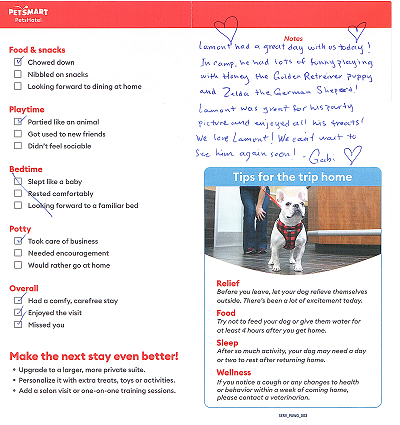 PETSMART
PetsHotel
Food & snacks
Chowed down
Nibbled on snacks
Looking forward to dining at home
Playtime
Partied like an animal
Got used to new friends
Didn't feel sociable
Bedtime
Slept like a baby
Rested comfortably
Looking forward to a familiar bed
Potty
Took care of business
Needed encouragement
Would rather go at home
Overall
Had a comfy, carefree stay
Enjoyed the visit
Missed you
Make the next stay even better!
• Upgrade to a larger, more private suite.
• Personalize it with extra treats, toys or activities.
• Add a salon visit or one-on-one training sessions.
Notes
Lamont had a great day with us today!
In camp, he had lots of funny playing
with Honey the Golden Retreiver puppy
and Zelda the German Sheperd!
Lamont was great for his party
picture and enjoyed all his treats!
We love Lamont! We can't wait to
see him again soon! - Gabi
Tips for the trip home
Relief
Before you leave, let your dog relieve themselves
outside. There's been a lot of excitement today.
Food
Try not to feed your dog or give them water for
at least 4 hours after you get home.
Sleep
After so much activity, your dog may need a day
or two to rest after returning home.
Wellness
If you notice a cough or any changes to health
or behavior within a week of coming home,
please contact a veterinarian.